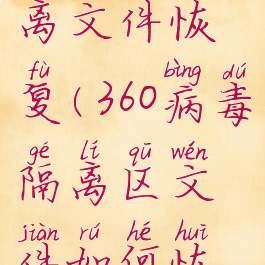 离文件恢
fù bìng dú
复(360病毒
gé lí qū wén
隔离区文
jiàn rú hé huī
件如何恢